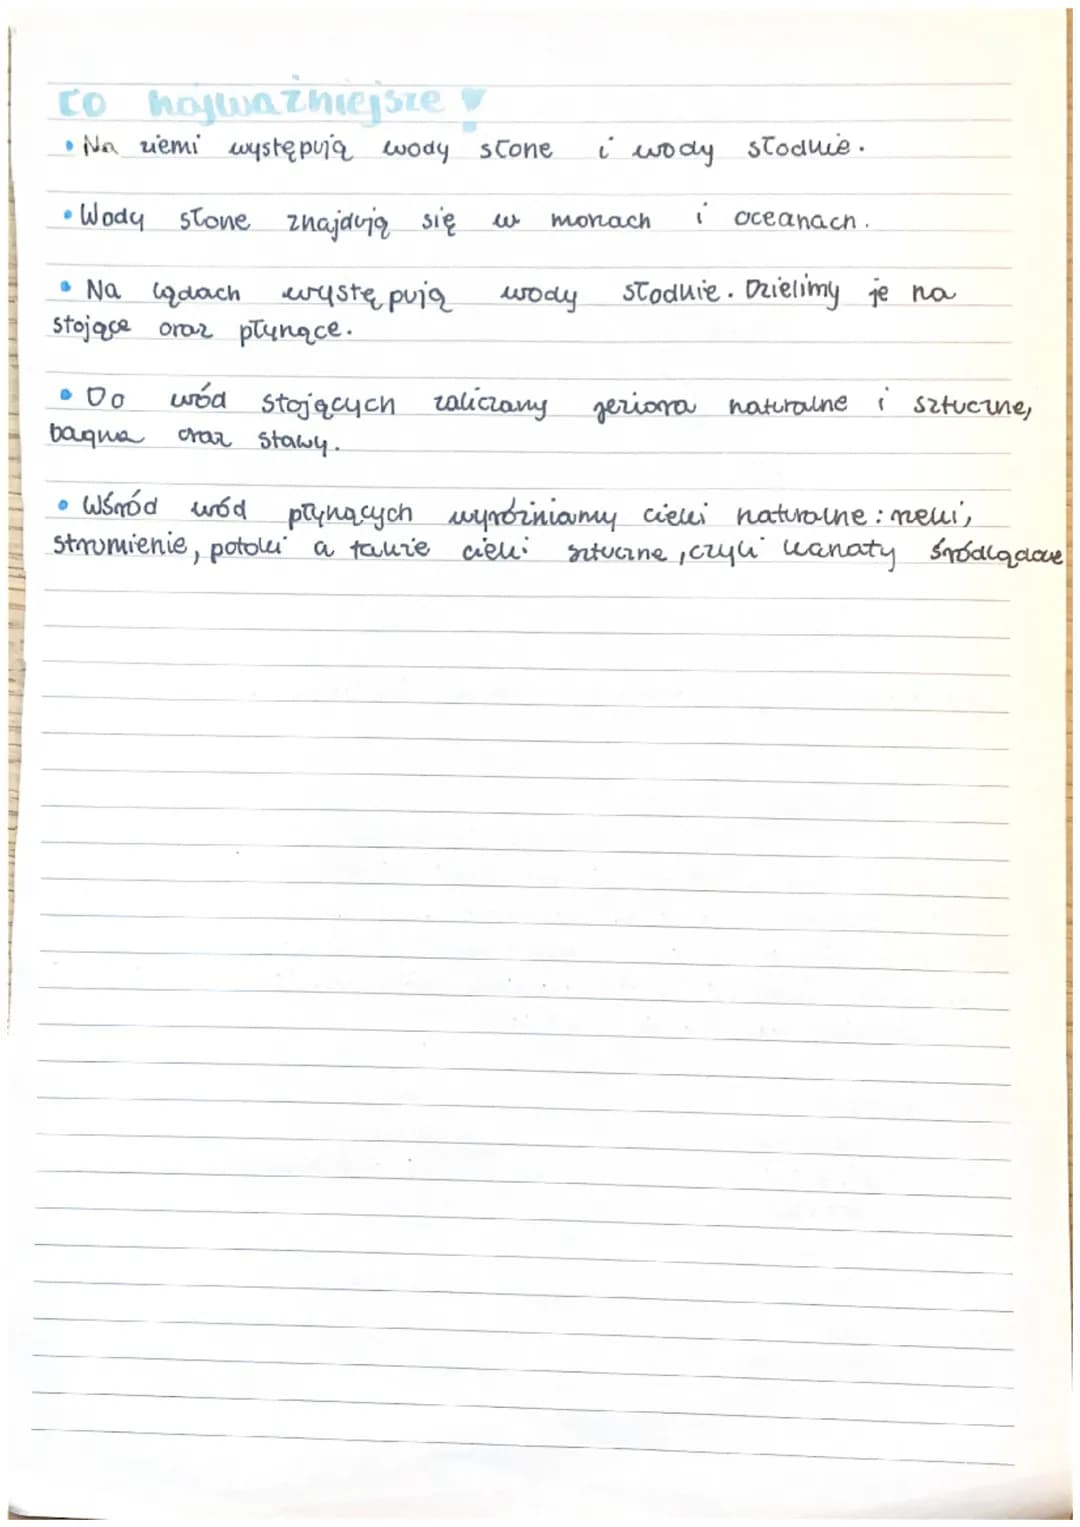 Co najważniejsze!
• Na ziemi występują wody słone i wody słodkie.
• Wody słone znajdują się w morzach i oceanach.
• Na lądach występują wody słodkie. Dzielimy je na
stojące oraz płynące.
• Do wód stojących zaliczamy jeziora naturalne i sztuczne,
bagna oraz stawy.
• Wśród wód płynących wyróżniamy cieki naturalne: rzeki,
strumienie, potoki a także cieki sztuczne, czyli kanały śródlądowe